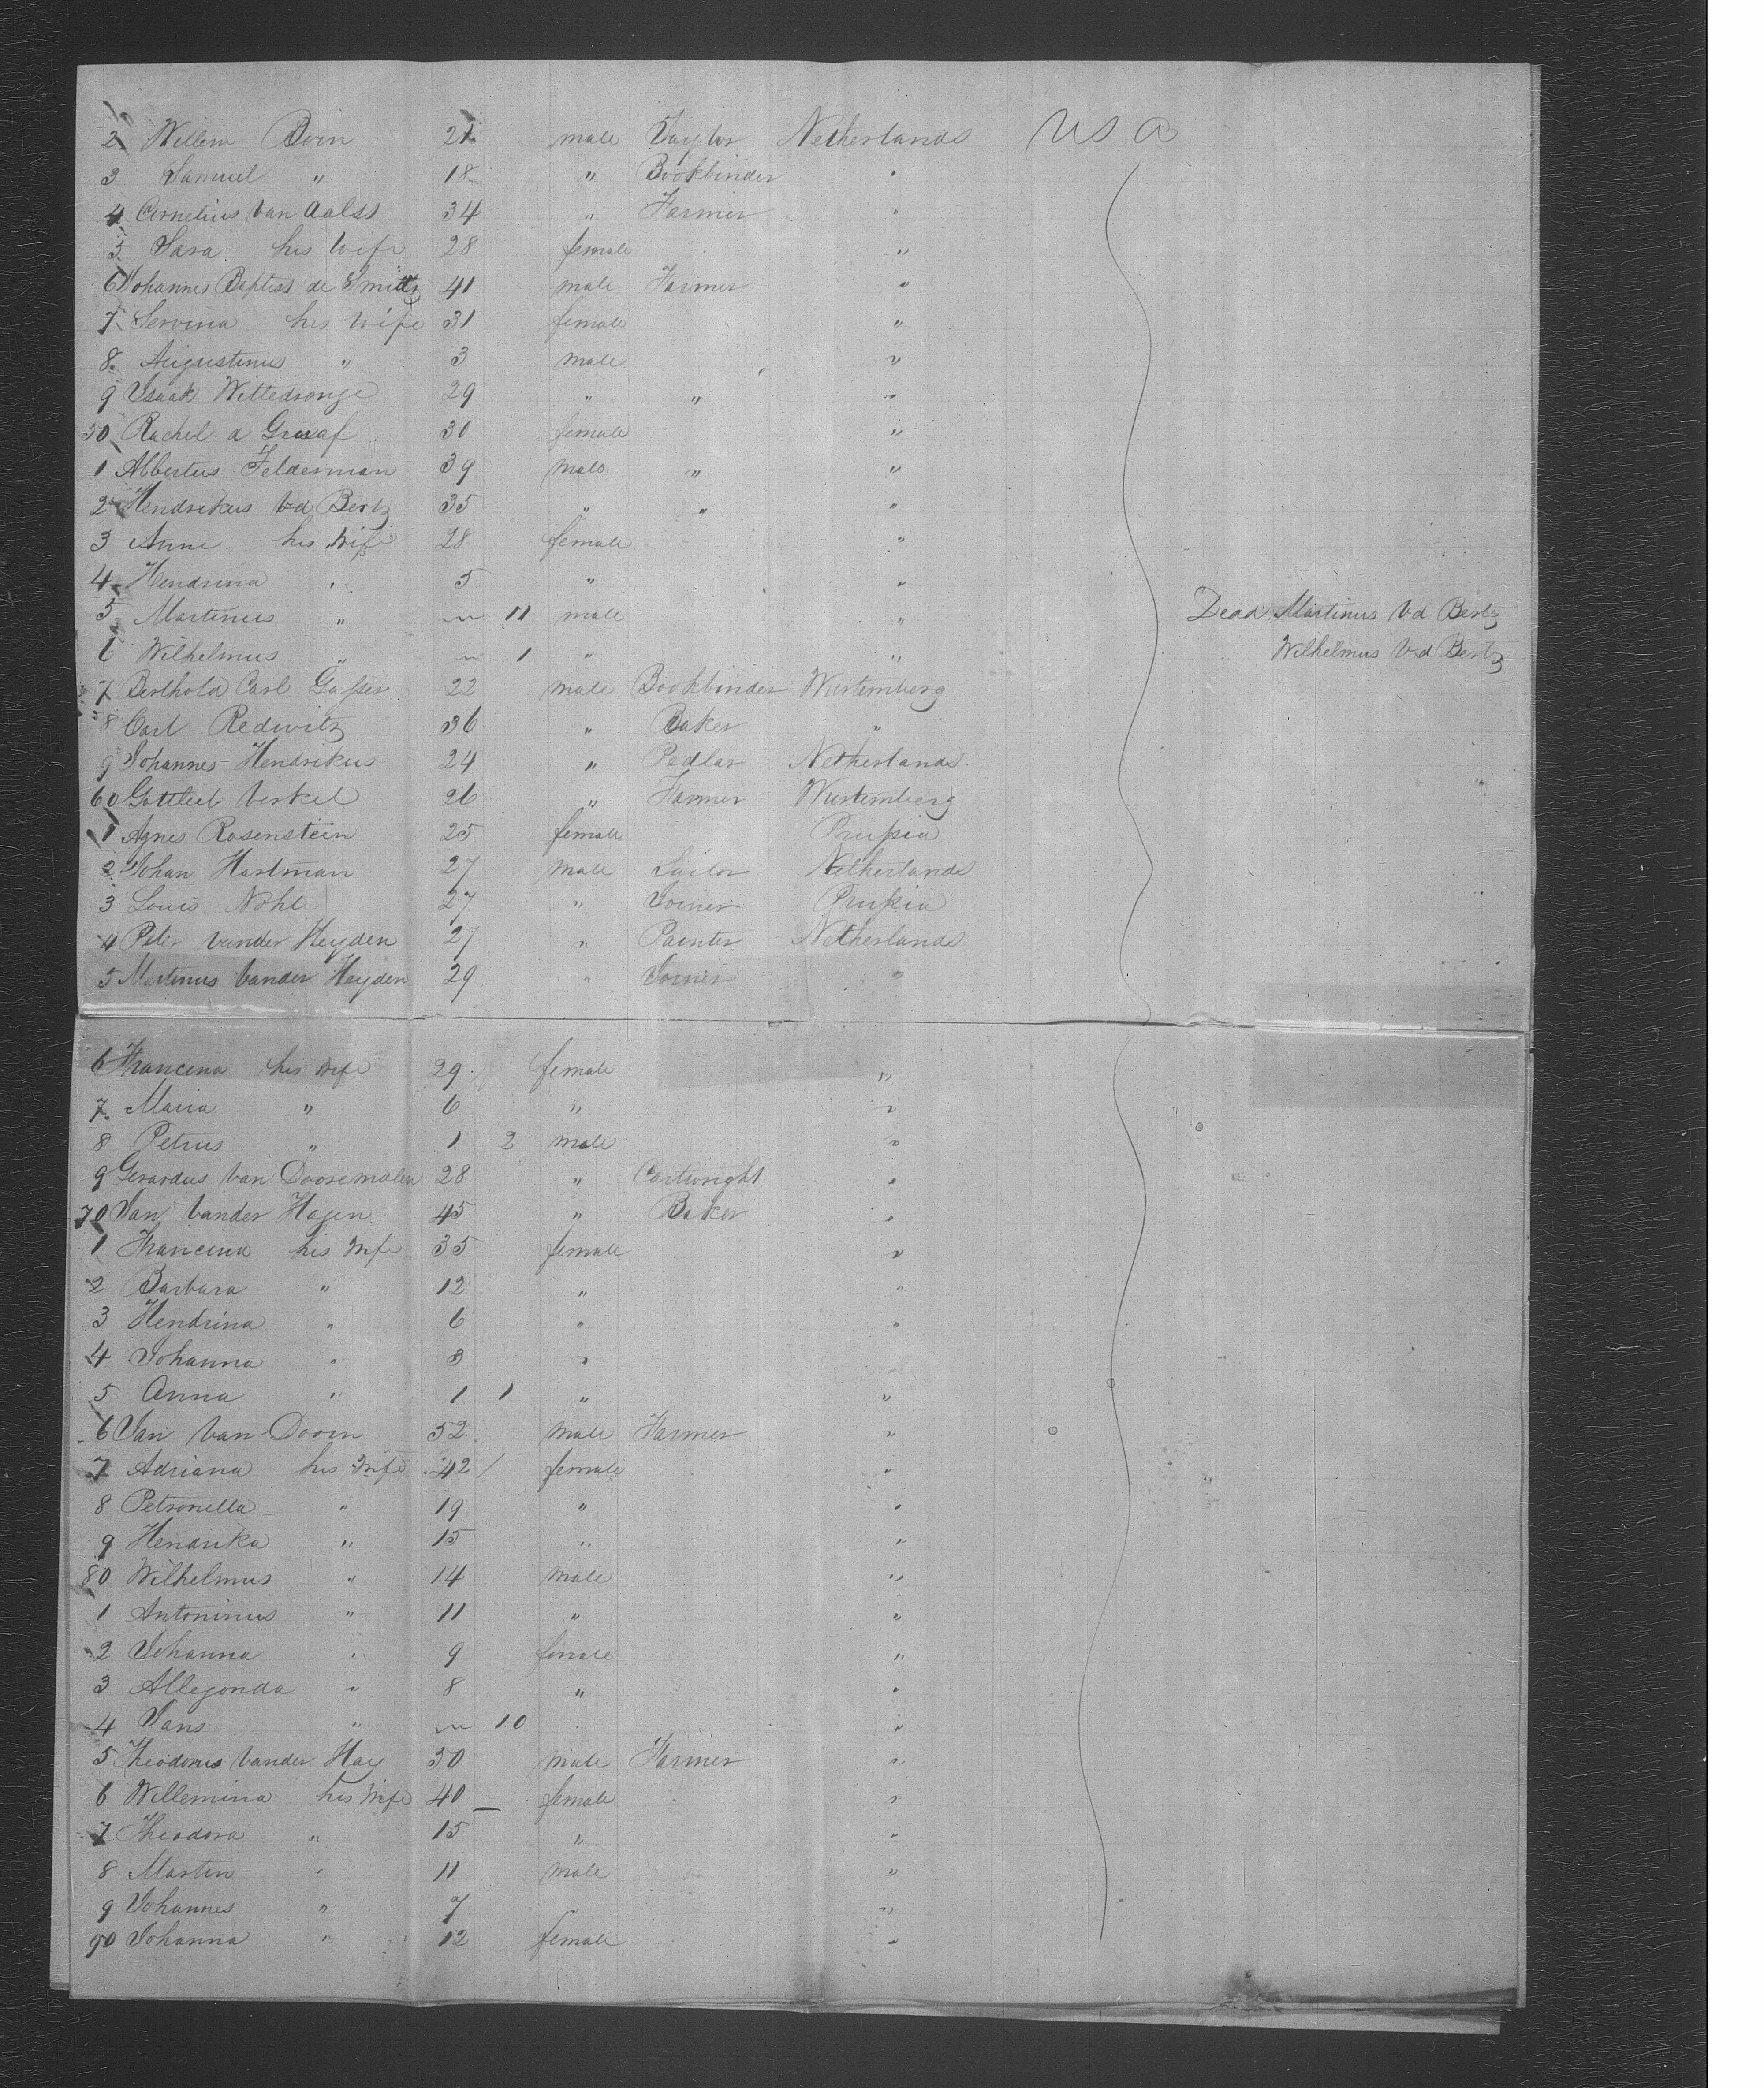 2 Willem Boin 21 male Taylor Netherlands USA
3 Samuel " 18 " Bookbinder "
4 Cornelius van Aalst 34 " Farmer "
5 Sara his wife 28 female "
6 Johannes Baptist de Smitt 41 male Farmer "
7 Servina his wife 31 female "
8 Augustinus " 3 male "
9 Isaak Wittedronge 29 " " "
50 Rachel d Graaf 30 female "
1 Albertus Felderman 39 male " "
2 Hendrikus vd Bertz 35 " " "
3 Anne his wife 28 female "
4 Hendrina " 5 " "
5 Martinus " 11 male " Dead Martinus vd Bertz
6 Wilhelmus " 1 " " Wilhelmus vd Bertz
7 Berthold Carl Gasser 22 male Bookbinder Wurtemberg
8 Carl Redwitz 36 " Baker "
9 Johannes Hendrikus 24 " Pedlar Netherlands
60 Gottlieb Verkel 26 " Farmer Wurtemberg
1 Agnes Rosenstein 25 female Prussia
2 Johan Hartman 27 male Sailor Netherlands
3 Louis Nohl 27 " Joiner Prussia
4 Peter vander Heyden 27 " Painter Netherlands
5 Martinus vander Heyden 29 " Joiner "
6 Francina his wife 29 female "
7 Maria " 6 " "
8 Petrus " 1 2 male "
9 Gerardus van Dooremalen 28 " Cartwright "
70 Jan vander Hagen 45 " Baker "
1 Francina his wife 35 female "
2 Barbara " 12 " "
3 Hendrina " 6 " "
4 Johanna " 3 " "
5 Anna " 1 1 " "
6 Jan van Doorn 52 male Farmer "
7 Adriana his wife 42 female "
8 Petronella " 19 " "
9 Hendrika " 15 " "
80 Wilhelmus " 14 male "
1 Antoninus " 11 " "
2 Johanna " 9 female "
3 Allegonda " 8 " "
4 Jans " 10 " "
5 Theodorus vander Hay 50 male Farmer "
6 Willemina his wife 40 female "
7 Theodora " 15 " "
8 Martin " 11 male "
9 Johannes " 7 "
90 Johanna " 12 female "